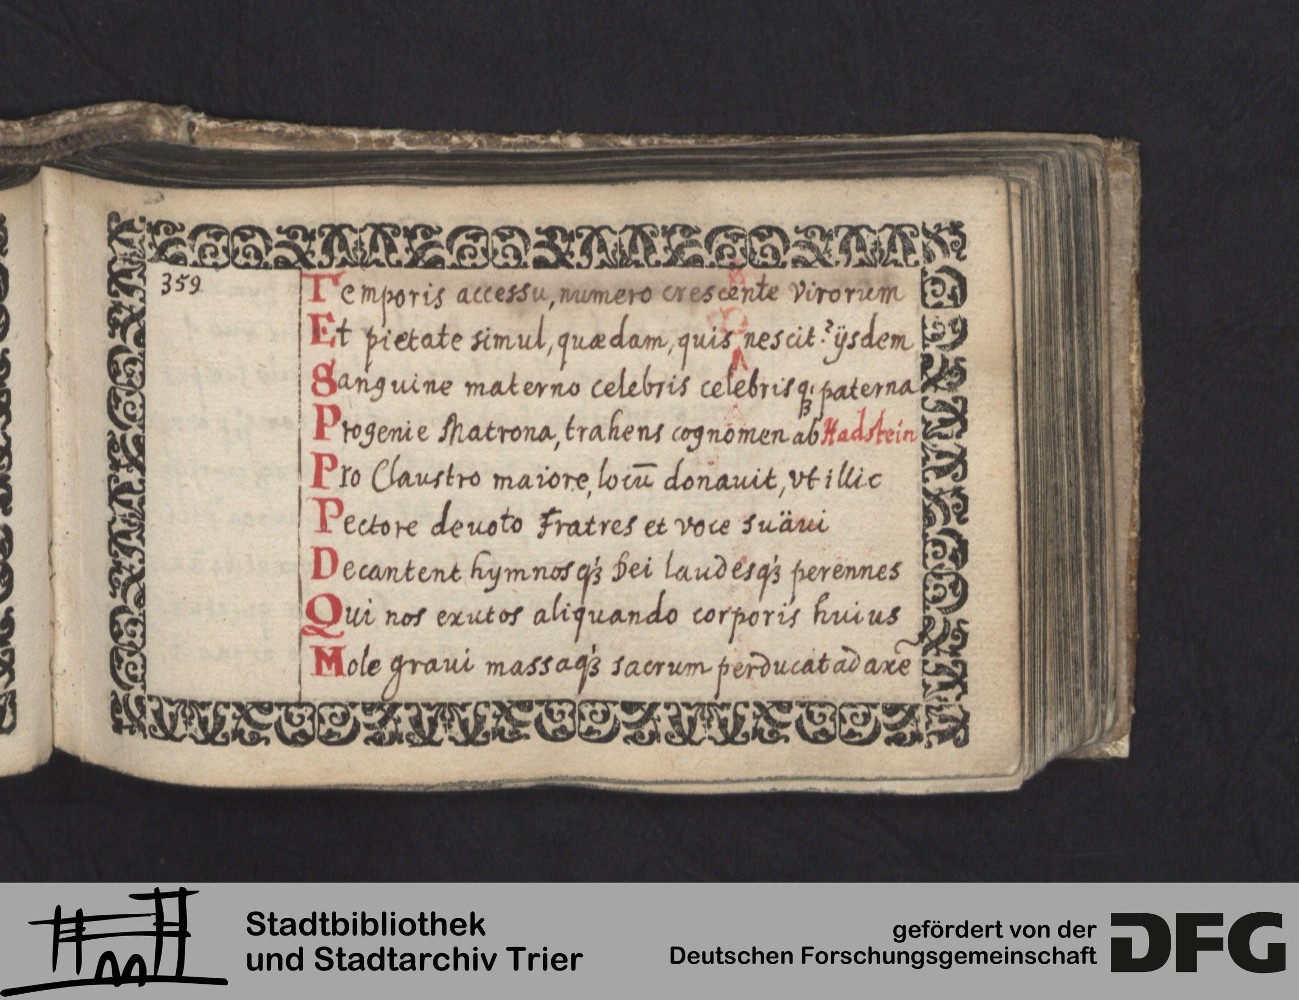 359
Temporis accessu, numero crescente virorum
Et pietate simul, quædam, quis nescit? ijsdem
Sanguine materno celebris celebrisq; paterna
Progenie Matrona, trahens cognomen ab Hadstein
Pro Claustro maiore, locū donauit, vt illic
Pectore deuoto Fratres et voce suäui
Decantent hymnosq́ꝫ Dei laudesq́ꝫ perennes
Qui nos exutos aliquando corporis huius
Mole graui massaq́ꝫ sacrum perducat ad axē
Stadtbibliothek
und Stadtarchiv Trier
gefördert von der
Deutschen Forschungsgemeinschaft
DFG